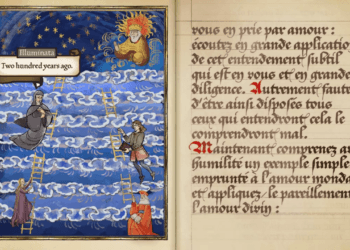 Illuminata
Two hundred years ago.
vous en prie par amour :
écoutez en grande application
de cet entendement subtil
qui est en vous et en grande
diligence. Autrement faute
d'être ainsi disposés tous
ceux qui entendront cela le
comprendront mal.
Maintenant comprenez
humilité un exemple simple
emprunté à l'amour monda
et appliquez le pareillement
l'amour divin :